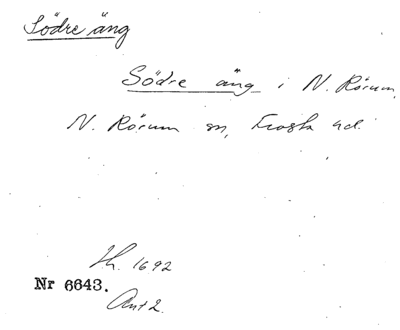 Södre äng
Södre äng i N. Rörum,
N. Rörum sn, Frosta hd.
Jh. 1692
Nr 6643.
Ant 2.